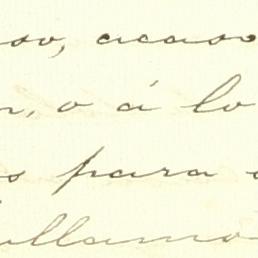 so, acaso
n, o á lo
s para
llamo